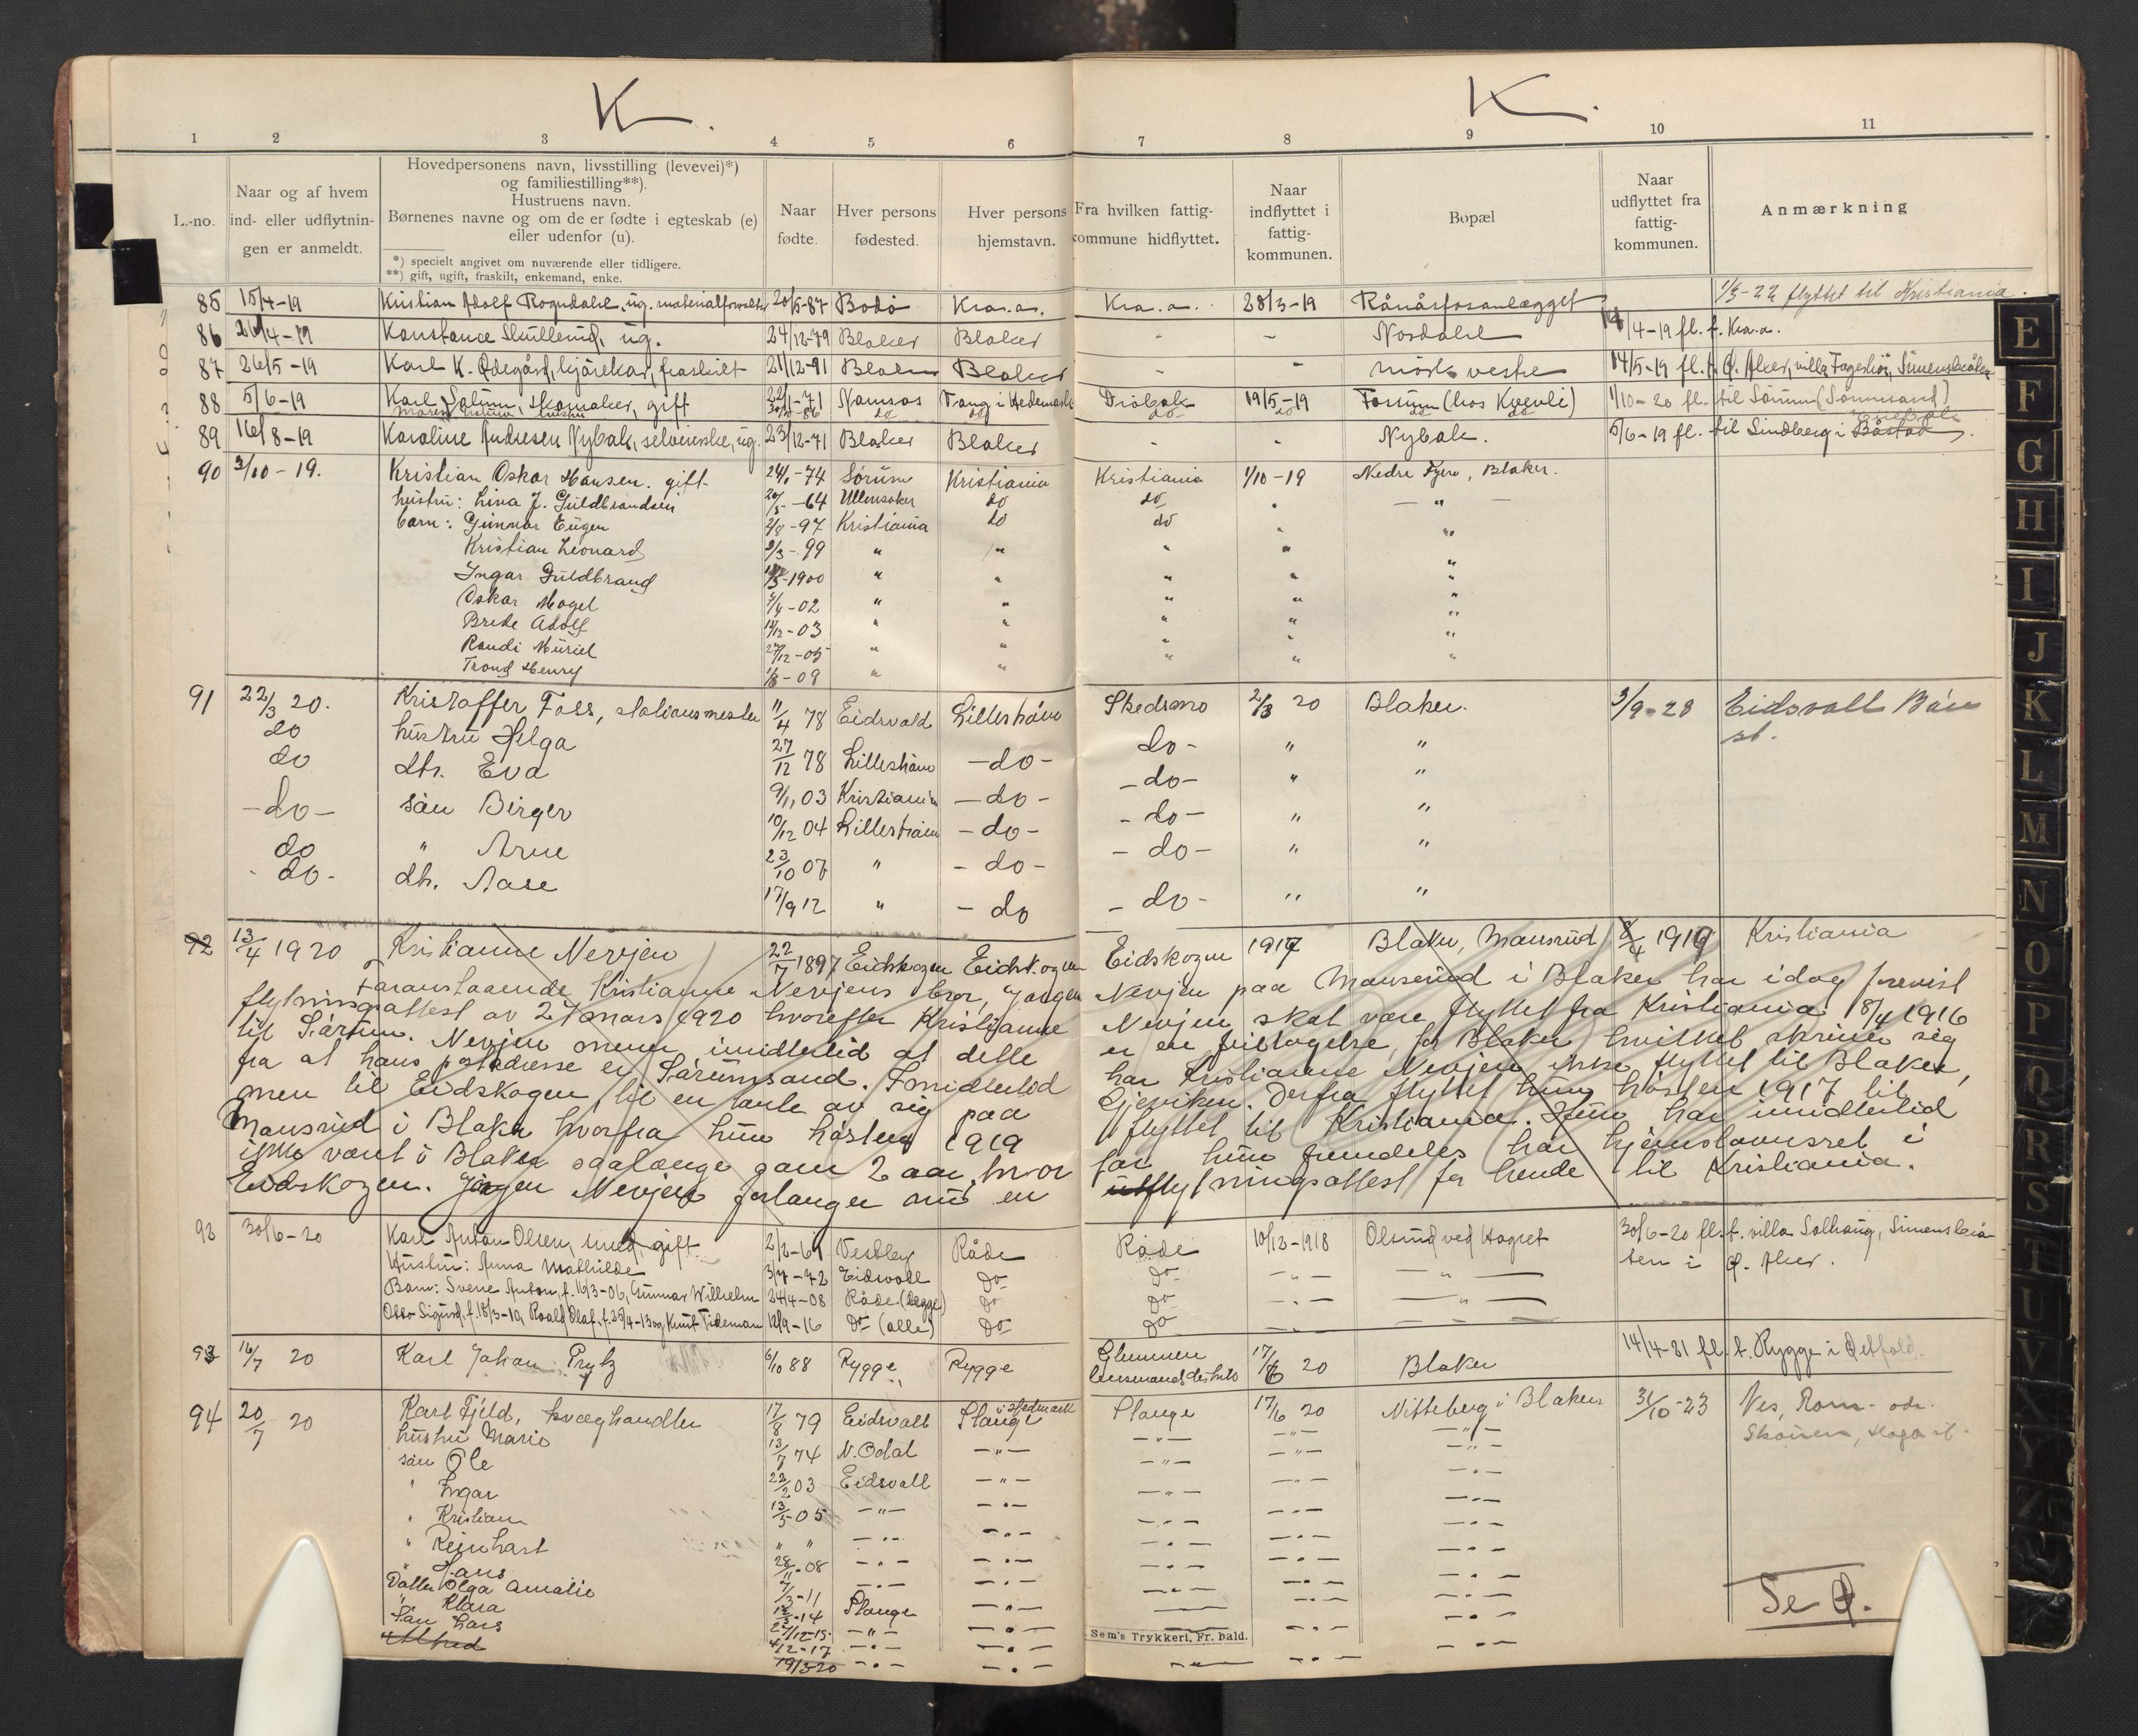 K. K.
1 2 3 4 5 6 7 8 9 10 11
L.-no.
Naar og af hvem
ind- eller udflytnin-
gen er anmeldt.
Hovedpersonens navn, livsstilling (levevei)*)
og familiestilling**).
Hustruens navn.
Børnenes navne og om de er fødte i egteskab (e)
eller udenfor (u).
*) specielt angivet om nuværende eller tidligere.
**) gift, ugift, fraskilt, enkemand, enke.
Naar
fødte.
Hver persons
fødested.
Hver persons
hjemstavn.
Fra hvilken fattig-
kommune hidflyttet.
Naar
indflyttet i
fattig-
kommunen.
Bopæl
Naar
udflyttet fra
fattig-
kommunen.
Anmærkning
1/5-22 flyttet til Kristiania.
85 15/4-19 Kristian Adolf Rogndahl, ug. 20/5-87 Bodö Kra.a. Kra.a. 28/3-19 Rånåsfosanlægget
86 26/4-19 Konstance Skullerud, ug. 24/12-79 Blaker Blaker - - Nordahl /4-19 fl. t. Kra.a.
87 26/5-19 Karl K. Ödegård, kjörekar, fraskilt 21/12-91 Blaker Blaker - - Mörk vestre 14/5-19 fl. t. Ø. Aker, villa Fagerhöi, Simensbråten
88 5/6-19 Karl Solum, skomaker, gift 22/1-71 Namsos Vang i Hedemark Dröbak 19/5-19 Fossum (hos Kvevli) 1/10-20 fl. til Sörum (Sörumsand)
Maren Solum, hustru do do do do do do
89 16/8-19 Karoline Andresen Nybak, selveierske, ug. 23/12-71 Blaker Blaker - - Nybak. 5/6-19 fl. til Lindberg i Båstad.
90 3/10-19. Kristian Oskar Hansen. gift 24/1-74 Sörum Kristiania Kristiania 1/10-19 Nedre Fjero, Blaker.
hustru: Lina J. Guldbrandsen 20/5-64 Ullensaker do do " — " —
barn: Gunnar Eugen 2/8-97 Kristiania do do " "
Kristian Leonard 2/3-99 " " " " "
Ingar Guldbrand -1900 " " " " "
Oskar Magel /4-02 " " " " "
Brede Adolf 14/12-03 " " " " "
Randi Muriel 27/12-05 " " " " "
Trond Henry -09 " " " " "
91 22/3 20. Kristoffer Foss, stationsmester 11/4 78 Eidsvold Lillestrøm Skedsmo 2/3 20 Blaker. 3/9-28 Eidsvoll Bån
st.
do hustru Helga 27/12 78 Lillestrøm -do- do- " "
do dtr. Eva 9/11 03 Kristiania -do- -do- " "
-do- sön Birger 10/12 04 Lillestrøm -do- -do- " "
do " Arne 23/10 07 " -do- -do- " "
-do- dtr. Aase 17/9 12 " -do -do- " "
92 13/4 1920 Kristianne Nevjen 22/7 1897 Eidskogen Eidskogen Eidskogen 1917 Blaker, Mansrud 8/4 1919 Kristiania
Foranstaaende Kristianne Nevjens bror, Jørgen Nevjen paa Mansrud i Blaker har idag forevist
flytningsattest av 27 mars 1920 hvorefter Kristianne Nevjen skal være flyttet fra Kristiania 18/4 1916
til Sørum. Nevjen mener imidlertid at dette er en feiltagelse for Blaker hvilket skriver sig
fra at hans postadresse er Sørumsand. Imidlertid har Kristianne Nevjen ikke flyttet til Blaker,
men til Eidskogen til en tante av sig paa Gjeviken. Derfra flyttet hun høsten 1917 til
Mansrud i Blaker hvorfra hun høsten 1919 flyttet til Kristiania. Hun har imidlertid
ikke været i Blaker saalænge som 2 aar, hvorfor hun fremdeles har hjemstavnsret i
Eidskogen. Jørgen Nevjen forlanger nu en utflytningsattest for hende til Kristiania.
93 30/6-20 Karl Anton Olsen, smed, gift 2/2-61 Vestby Råde Råde 10/12-1918 Olsrud ved Haget 30/6-20 fl. t. villa Solhaug, Simensbrå-
ten i Ø. Aker.
Hustru: Anna Mathilde 3/7-72 Eidsvoll do do — " — — " —
Barn: Sverre Anton, f. 16/3-06, Gunnar Wilhelm 24/4-08 Råde (begge) do do — " — — " —
Otto Sigurd, f. 18/3-10, Roald Olaf, f. 25/4-13 og Knut Tideman 12/9-16 do (alle) do do
93 16/7 20 Karl Johan Prytz 6/10 88 Rygge Rygge Glemmen
lensmandsdistrikt 17/6 20 Blaker 14/4-21 fl. t. Rygge i Østfold.
94 20/7 20 Karl Fjeld, kvæghandler 17/8 79 Eidsvoll Stange i Hedmark Stange 17/6 20 Nitteberg i Blaker 31/10-23 Ves, Rom- odr.
Skåren, Haga st.
hustru Marie 13/7 74 N. Odal — " — — " — — " — — " —
sön Ole 22/2 03 Eidsvoll — " — — " — — " — — " —
" Ingar 13/5 05 — " — — " — — " — — " — — " —
" Kristian " " — " — — " — — " — — " — — " —
" Reinhart 28/11-08 — " — — " — — " — — " — — " —
" Hans /3-11 — " — — " — — " — — " — — " —
Datter Olga Amalie -14 Stange — " — — " — — " — — " —
" Klara 27/12-15 — " — — " — — " — — " —
Sön Lars 4/12-17 — " — — " — — " — — " —
" Alfred 19/3-20 — " — — " — — " — — " — — " —
Sem's Trykkeri, Fr. hald.
Se Q.
E
F
G
H
I
J
K
L
M
N
O
P
Q
R
S
T
U
V
Y
Z